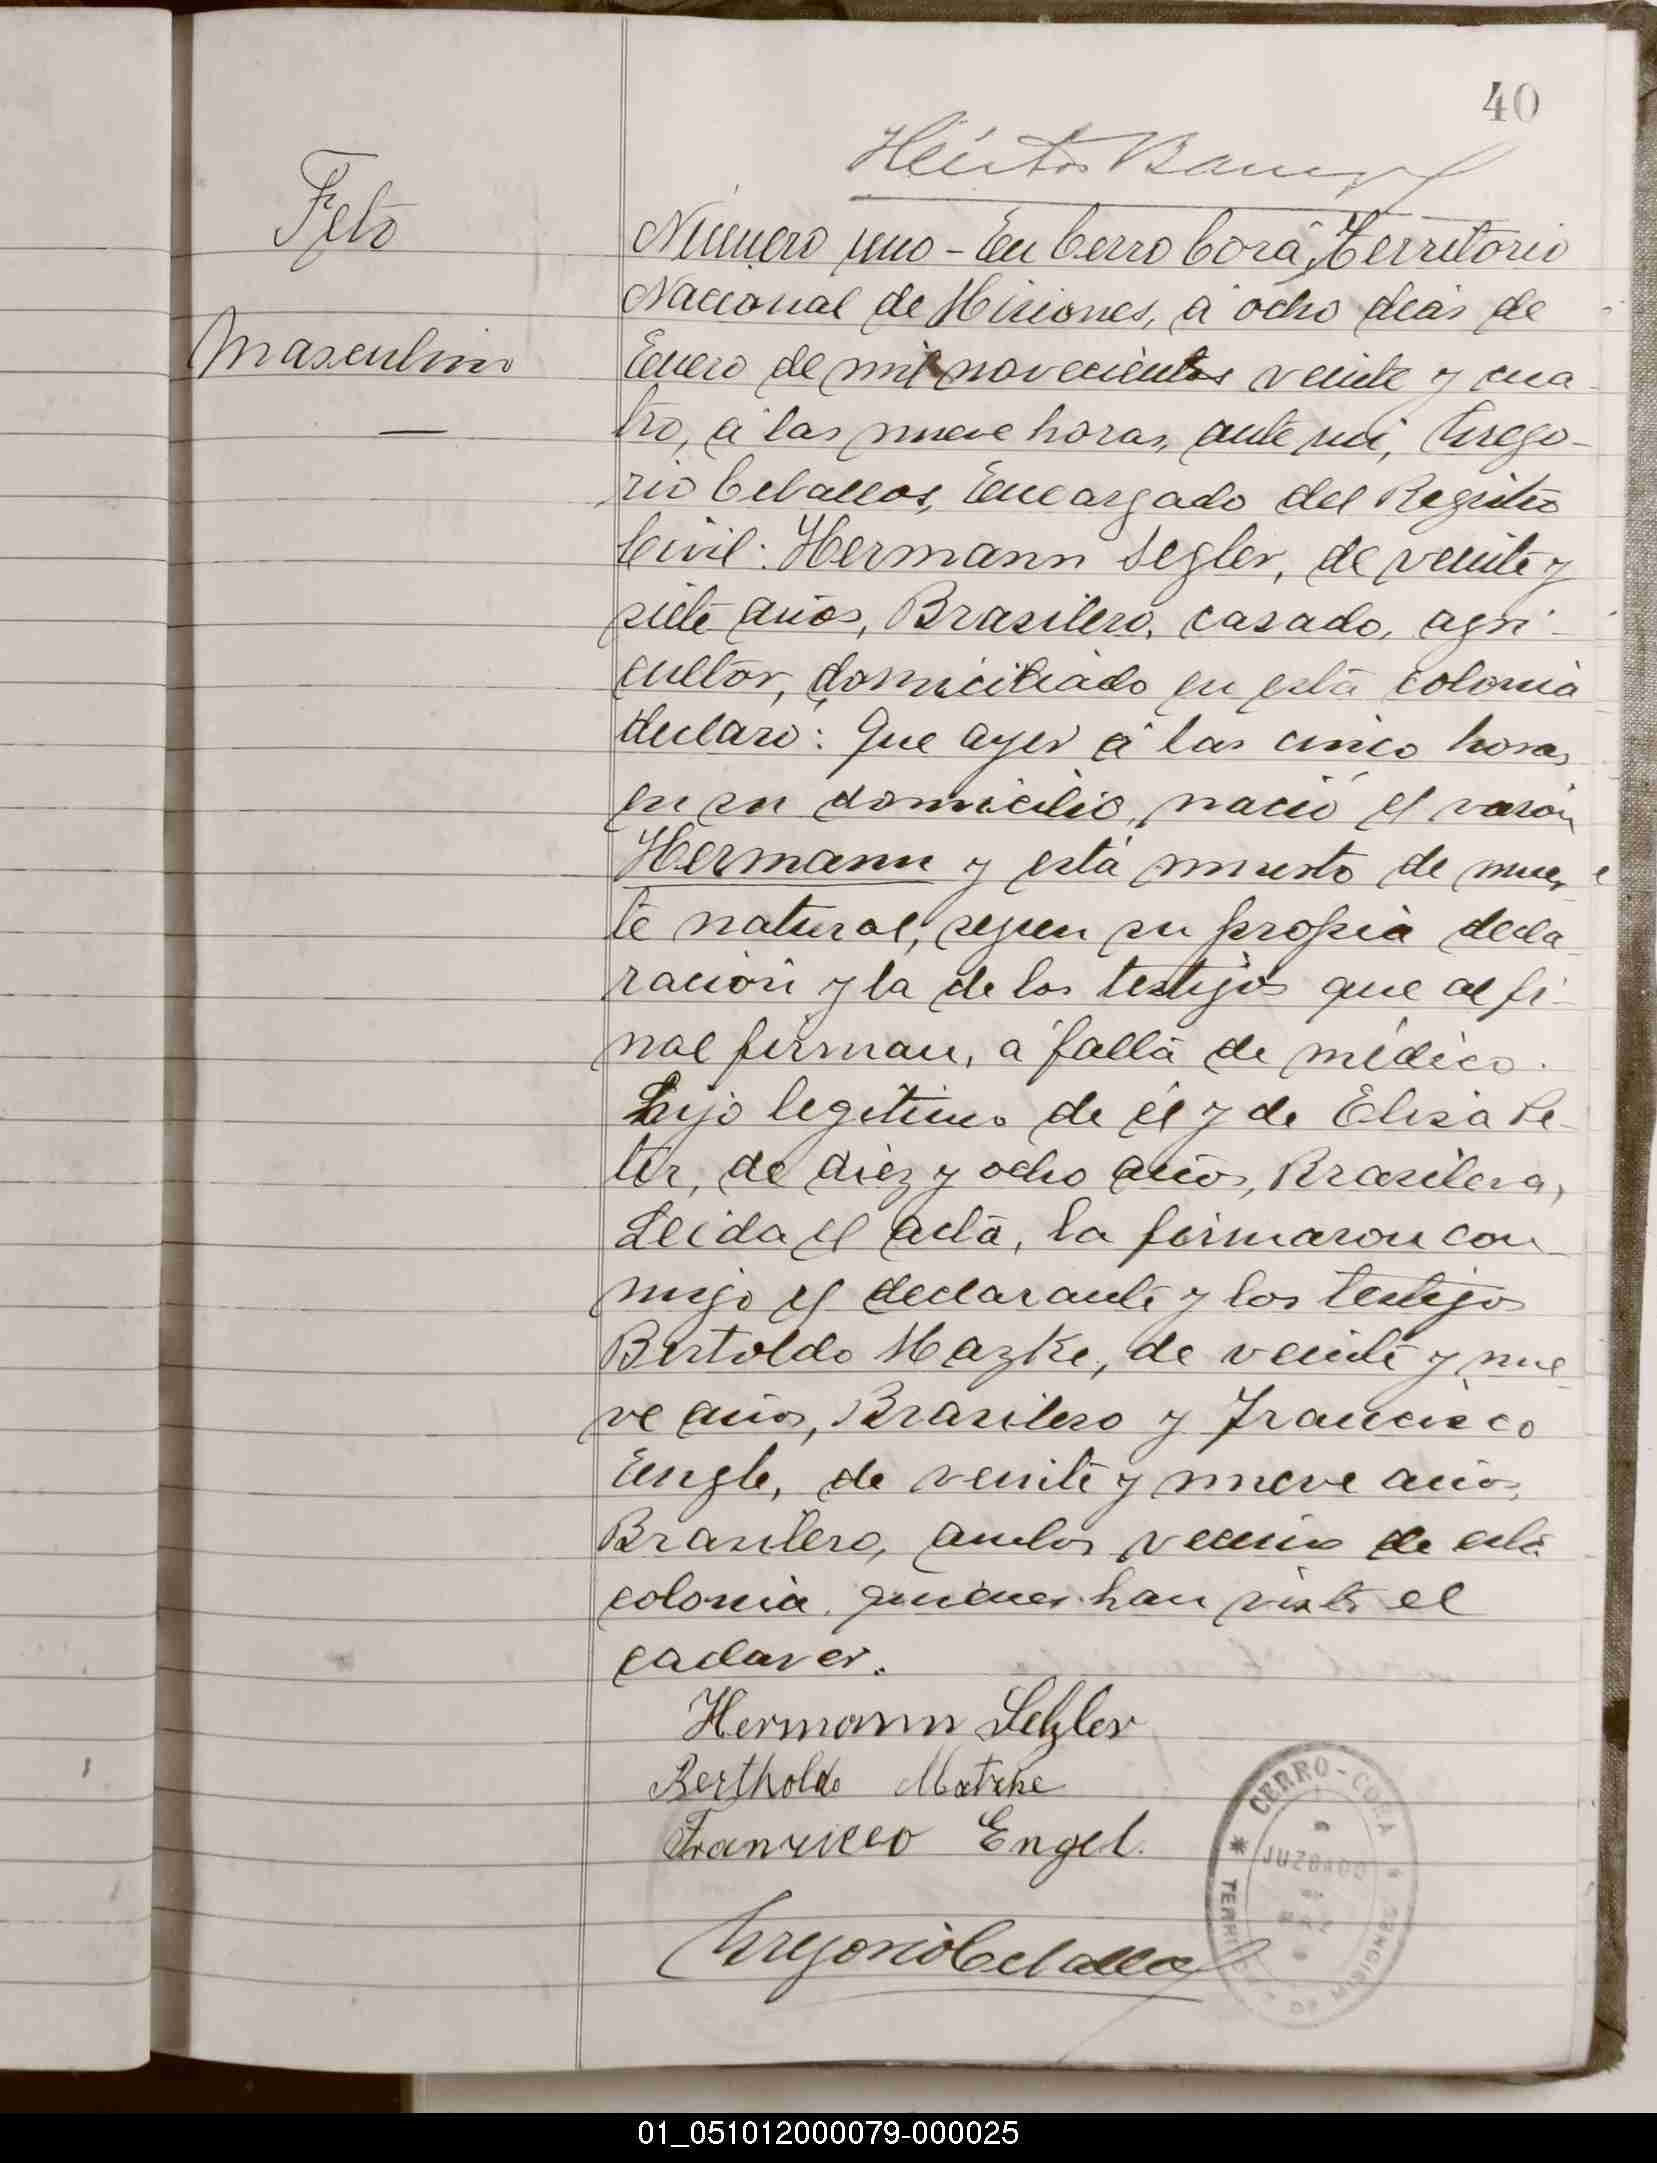 40
Feto
Masculino
Número uno - En Cerro Corá, Territorio
Nacional de Misiones, á ocho dias de
Enero de mil novecientos veinte y cua-
tro, á las nueve horas, ante mi, Grego-
rio Ceballos, Encargado del Registro
Civil: Hermann Segler, de veinte y
siete años, Brasilero, casado, agri-
cultor, domiciliado en esta colonia
declaró: Que ayer á las cinco horas
en su domicilio, nació el varón
Hermann y está muerto de muer-
te natural, segun su propia decla-
ración y la de los testigos que al fi-
nal firman, á falta de médico.
Hijo legítimo de él y de Elisa Pe-
ter, de diez y ocho años, Brasilera,
Leida el acta, la firmaron con-
migo el declarante y los testigos
Bertoldo Mazke, de veinte y nue-
ve años, Brasilero y Francisco
Engle, de veinte y nueve años,
Brasilero, ambos vecinos de esta
colonia, quienes han visto el
cadaver.
Hermann
Bertholdo
Engel.
Gregorio Ceballos
CERRO-CORA
JUZGADO
DE PAZ
TERRITORIO DE MISIONES
01_051012000079-000025